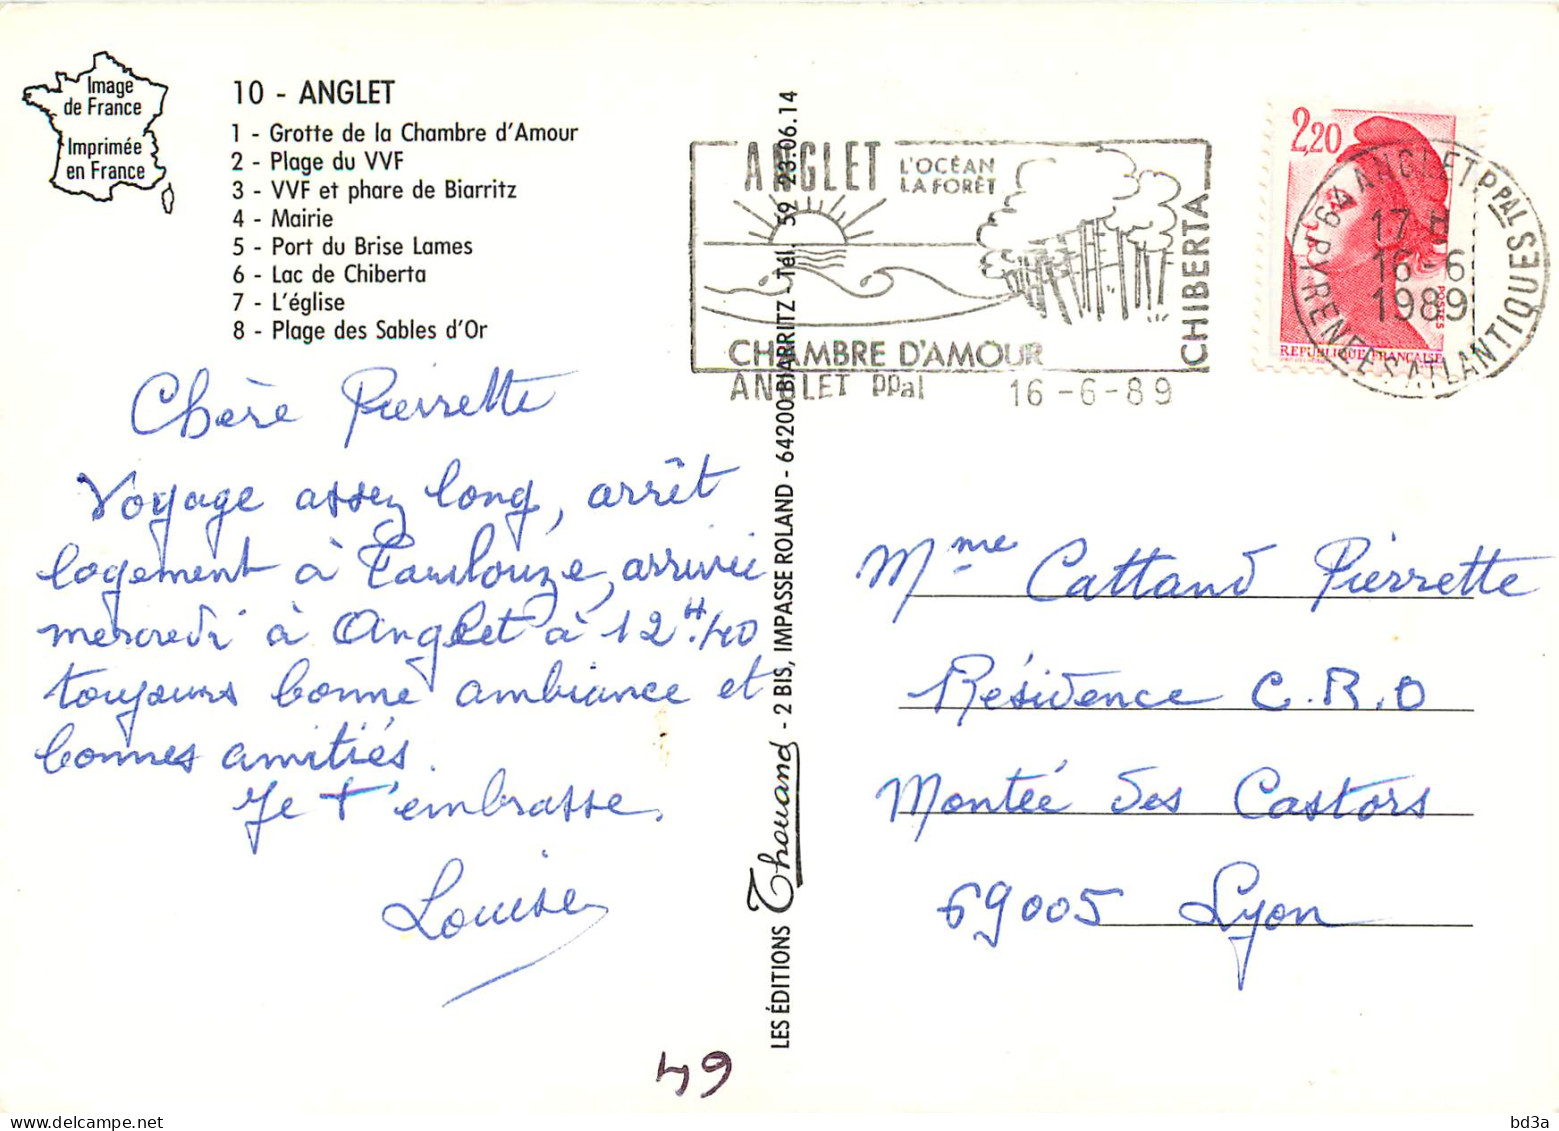 Image
de France
Imprimée
en France
10 - ANGLET
1 - Grotte de la Chambre d'Amour
2 - Plage du VVF
3 - VVF et phare de Biarritz
4 - Mairie
5 - Port du Brise Lames
6 - Lac de Chiberta
7 - L'église
8 - Plage des Sables d'Or
Chère Pierrette
Voyage assez long, arrêt
logement à Toulouze, arrivée
mercredi à Anglet à 12H.40
toujours bonne ambiance et
bonnes amitiés.
Je t'embrasse.
Louise
64
LES ÉDITIONS Thouand - 2 BIS, IMPASSE ROLAND - 64200 BIARRITZ - Tél. 59 23.06.14
ANGLET L'OCÉAN
LA FORÊT
CHIBERTA
CHAMBRE D'AMOUR
ANGLET PPal 16-6-89
2,20
POSTES
REPUBLIQUE FRANÇAISE
64 ANGLET PPAL
17 H
16-6
1989
PYRENEES ATLANTIQUES
Mme Cattand Pierrette
Résidence C.R.O
Montée des Castors
69005 Lyon
bd3a